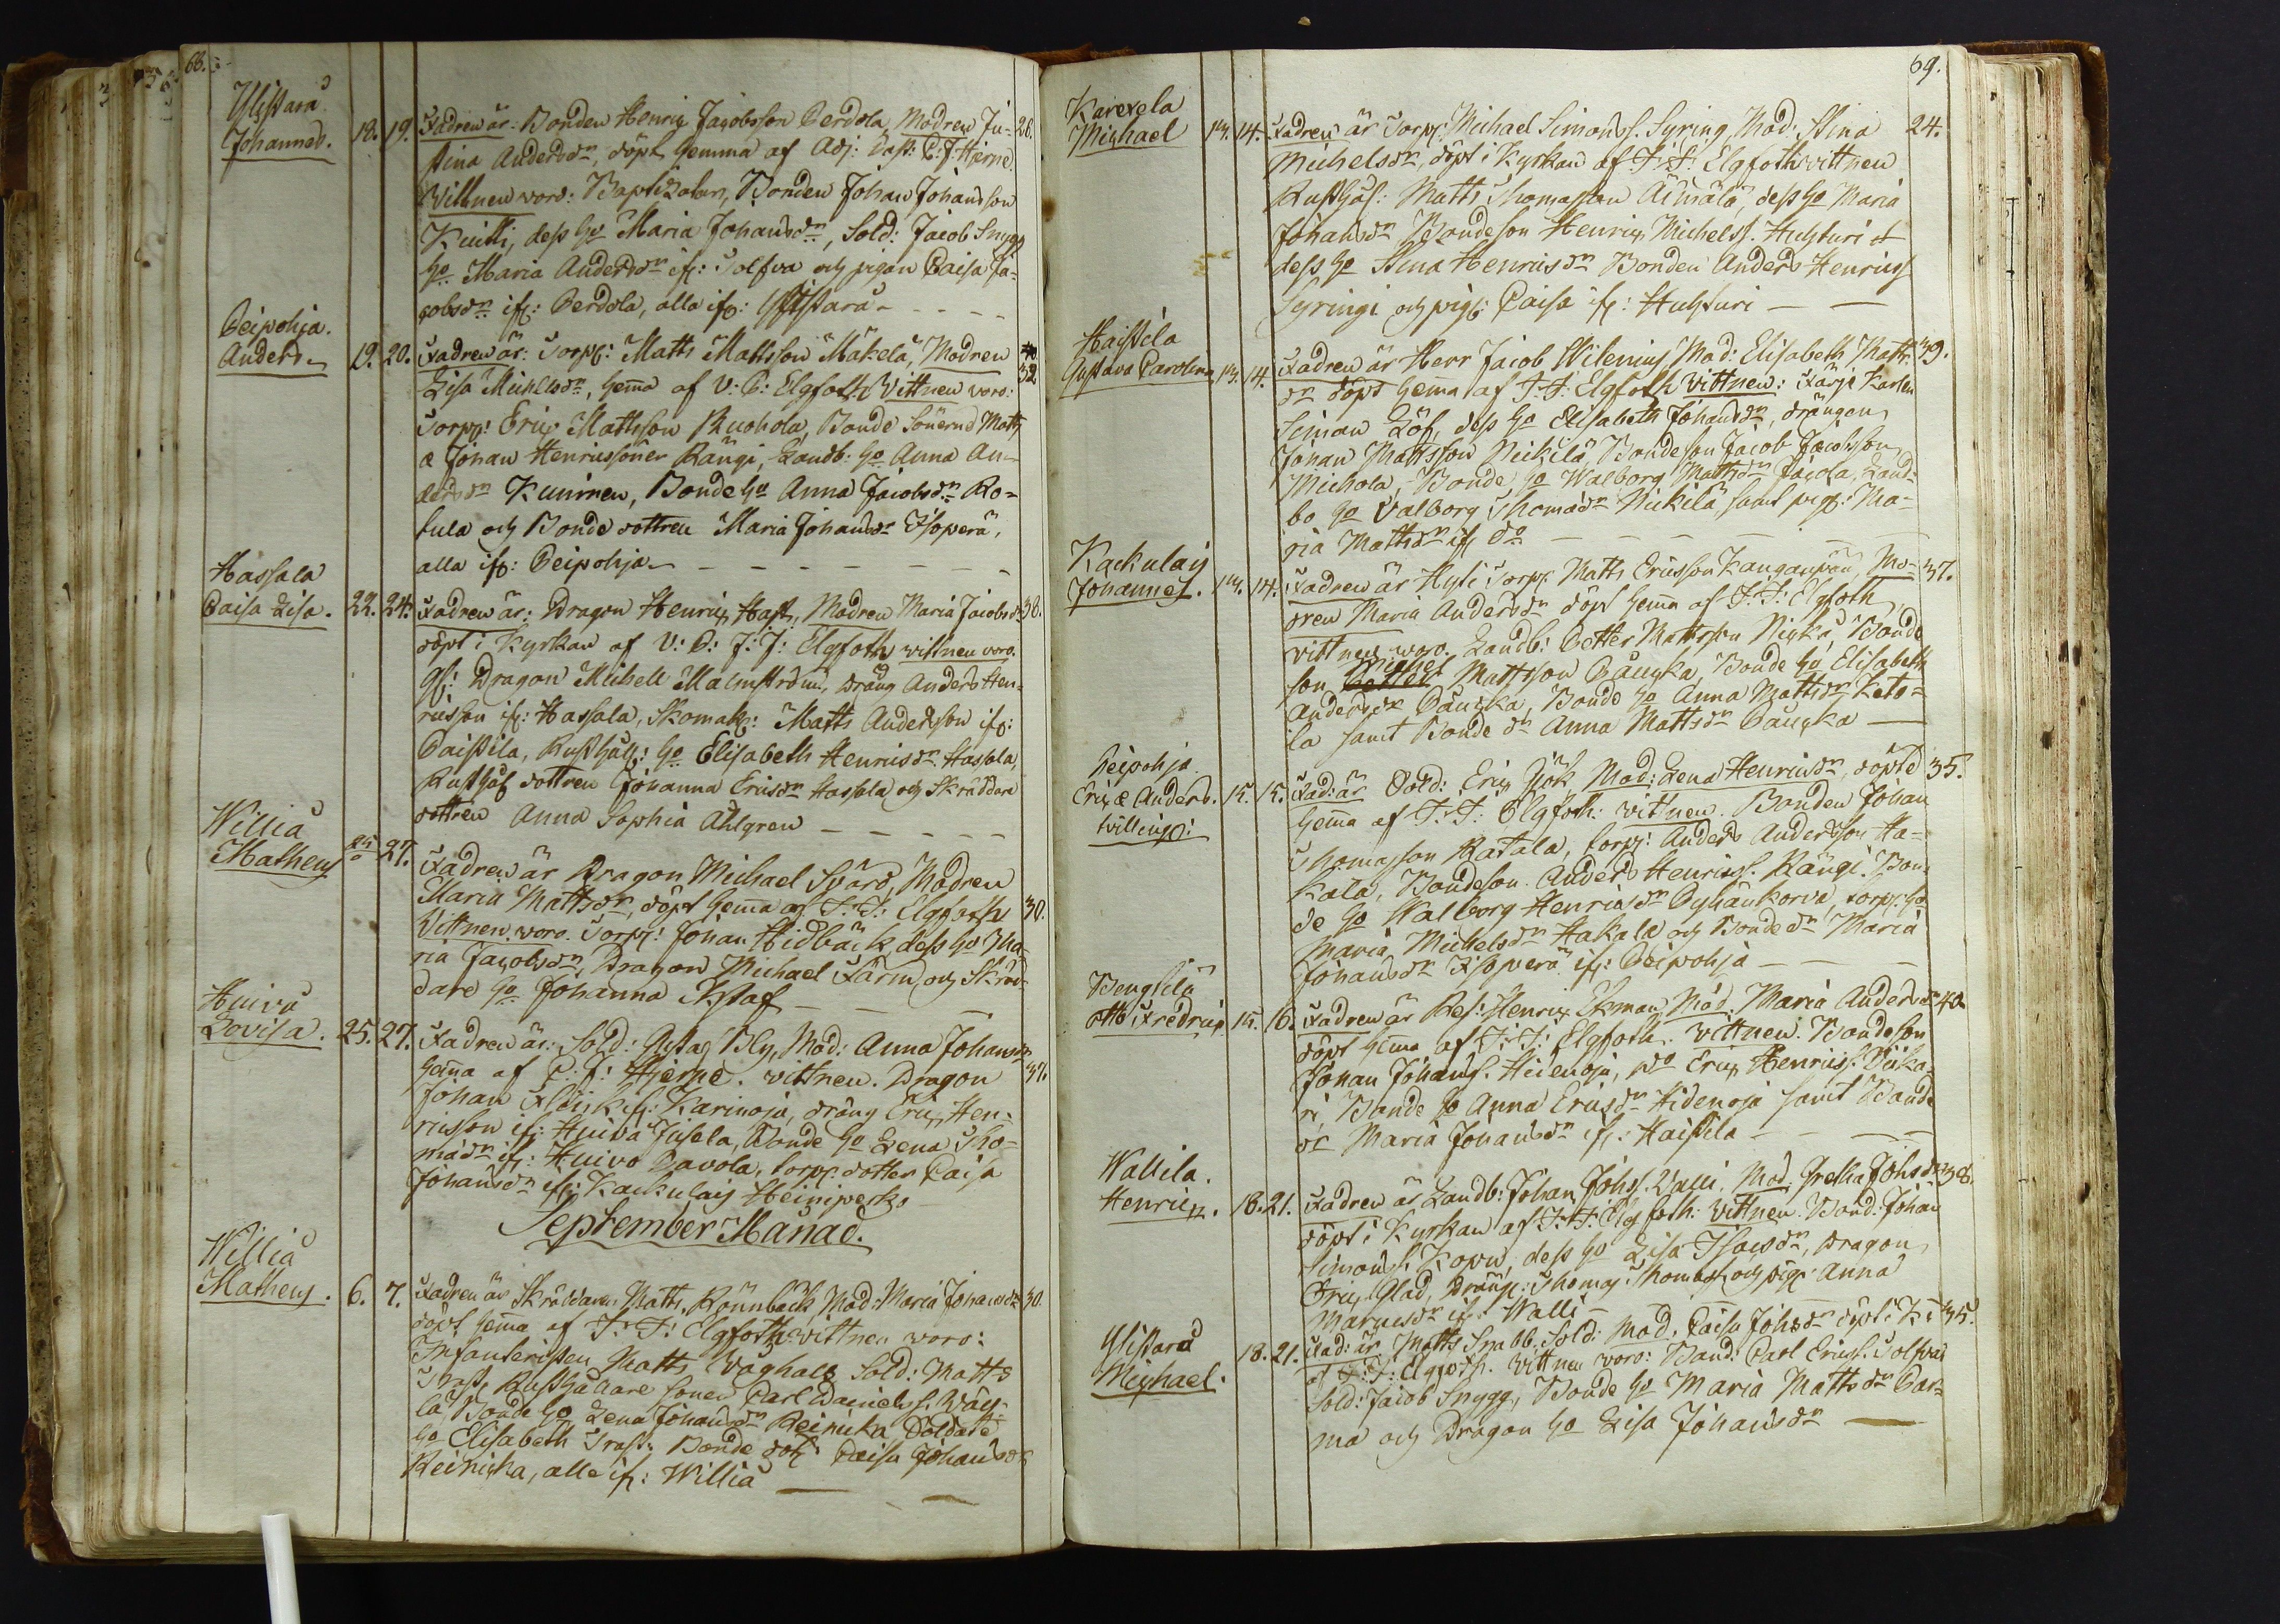 68.
Ylistara
Johannes. 18. 19. Fadren är: Bonden Henric Jacobsson Perdola, Modren Ju= 26.
stina Andersdr, döpt hemma af Adj: Past: C. J. Hjerpe.
Vittnen voro: Baptizatus, Bonden Johan Johansson
Knitti, dess ho Maria Johansdr, Sold: Jacob Snygg
ho Maria Andersdr ifr: Solsva och pigan Caisa Ja=
cobsdr ifr: Perdola, alla ifr: Ylistara
Peipohja.
Anders 19. 20. Fadren är: Torp: Matts Mattsson Mäkelä, Modren 32.
Lisa Michelsdr, hema af V: P: Elgfoth Vittnen voro:
Torpp: Eric Mattsson Ruohola, Bonde Sönerna Matts
& Johan Henricssöner Rängi, Landb: ho Anna An=
dersdr Kuninen, Bonde ho Anna Jacobsdr Ro=
tula och Bonde dottren Maria Johansdr Isoperä,
alla ifr: Peipohja
Hassala
Caisa Lisa. 22. 24. Fadren är: Dragon Henric Hast, Modren Maria Jacobsdr 38.
döpt i Kyrkan af V: P: J: J: Elgfoth vittnen voro.
Gl: Dragon Michell Malmström, dräng Anders Hen=
ricsson ifr: Hassala, Skomak: Matts Andersson ifr:
Paistila, Rusthåll: ho Elisabeth Henricsdr Hassala,
Rusthål dottren Johanna Ericsdr Hassala och Skräddare
dottren Anna Sophia Ahlgren
Williä
Matheus 25. 27. Fadren är Dragon Michael Svärd, Modren
Maria Mattsdr, döpt hema af J. J: Elgfoth 30.
Vittnen voro. Torpp: Johan Hidbäck dess ho Ma=
ria Jacobsdr, Dragon Michael Färm, och Skräd=
dare ho Johanna Kstaf
Huivå
Lovisa. 25. 27. Fadren är: Sold: Gustaf Bly, Mod: Anna Johansdr
hema af C. J: Hjerpe. vittnen. Dragon 37.
Johan Flöjt ifr: Karinoja, dräng Eric Hen=
ricsson ifr: Huiva Jusela, Bonde ho Lena Tho=
madr ifr: Huivo Pavola, torpp: dotter Caisa
Johansdr ifr: Kackulais Heiniperko
September Månad.
Williä
Matheus. 6. 7. Fadren är Skräddaren Matts Rönnbäck Mod: Maria Johansdr 30.
döpt hema af J. J: Elgfoth vittnen voro:
Infanteristen Matts Våghals Sold: Matts
Trast, Rusthållare sonen Carl Daniels. Wäy=
lä, Bonde ho Lena Johansdr Reinicka Soldate
ho Elisabeth Trast. Bonde dot: Caisa Johansdr
Reinicka, alla ifr: Williä
69.
Karevela
Michael 13. 14. Fadren är Torp: Michael Simonss. Syring, Mod: Stina 24.
Michelsdr, döpt i Kyrkan af J: J: Elgfoth vittnen
Rusthål: Matts Thomasson Äimälä, dess ho Maria
Johansdr Bondeson Henric Michelss. Huhturi &
dess ho Stina Henricsdr Bonden Anders Henricss
Syringi och pig: Caisa ifr: Huhturi
Haistila
Gustava Carolina 13. 14. Fadren är Herr Jacob Wilenius Mod: Elisabeth Matts 39.
dr döpt hema af J. J: Elgfoth Vittnen: Färje Karlen
Simon Löf, dess ho Elisabeth Johansdr, drängen
Johan Mattsson Nickilä Bondeson Jacob Jacobsson
Michola, Bonde ho Walborg Mattsdr Jacola, Land=
bo ho Valborg Thomasdr Nickilä, samt pig: Ma=
ria Mattsdr ifr do
Kackulais
Johannes. 14. 14. Fadren är Hyli Torp: Matts Ericsson Kanganpää, Mo= 37.
dren Maria Andersdr döpt hema af J. J: Elgfoth,
vittnen voro. Landb: Petter Mattsson Nicka, Bonde
son Michel Mattsson Päucka, Bonde ho Elisabeth
Andersdr Päucka, Bonde ho Anna Mattsdr Keto=
la samt Bonde dr Anna Mattsdr Päucka
Peipohja.
Eric & Anders. 15. 15. Fad: är Sold: Eric Gök, Mod: Lena Henricsdr, döpte 35.
twilling:
hema af J. J: Elgfoth: vittnen. Bonden Johan
Thomasson Ratala, torp: Anders Andersson Ha=
kala, Bondeson Anders Henricss. Rängi. Bon=
de ho Walborg Henricsdr Pyhänkorva, torp: ho
Maria Michelsdr Hakala och Bonde dr Maria
Johansdr Isoperä ifr: Peipohja
Bengtilä
Otto Fredric 15. 16. Fadren är Res: Henric Ekman, Mod. Maria Andersdr 40.
döpt hema af J: J: Elgfoth. vittnen. Bondeson
Johan Johans. Hidenoja, do Eric Henricss. Päka=
ri Bonde ho Anna Ericsdr Hidenoja samt Bonde
dr Maria Johansdr ifr: Haistila
Wallila.
Henric. 18. 21. Fadren är Landb: Johan Johss. Valli. Mod. Gretha Johsdr 38.
döpt i Kyrkan af J. J: Elgfoth: vittnen. Bond: Johan
Simons. Kopu, dess ho Lisa Isacsdr, Dragon
Eric Glad, Dräng: Thomas Thomass, och pig: Anna
Marcusdr ifr: Walli
Ylistara
Michael. 18. 21. Fad: är Matts Snabb Sold: Mod. Caisa Johsdr döpt i K: 35.
af J: J: Elgfoth. vittnen voro: Bond. Carl Ericss. Solsva
Sold: Jacob Snygg, Bonde ho Maria Mattsdr Par=
ma och Dragon ho Lisa Johansdr